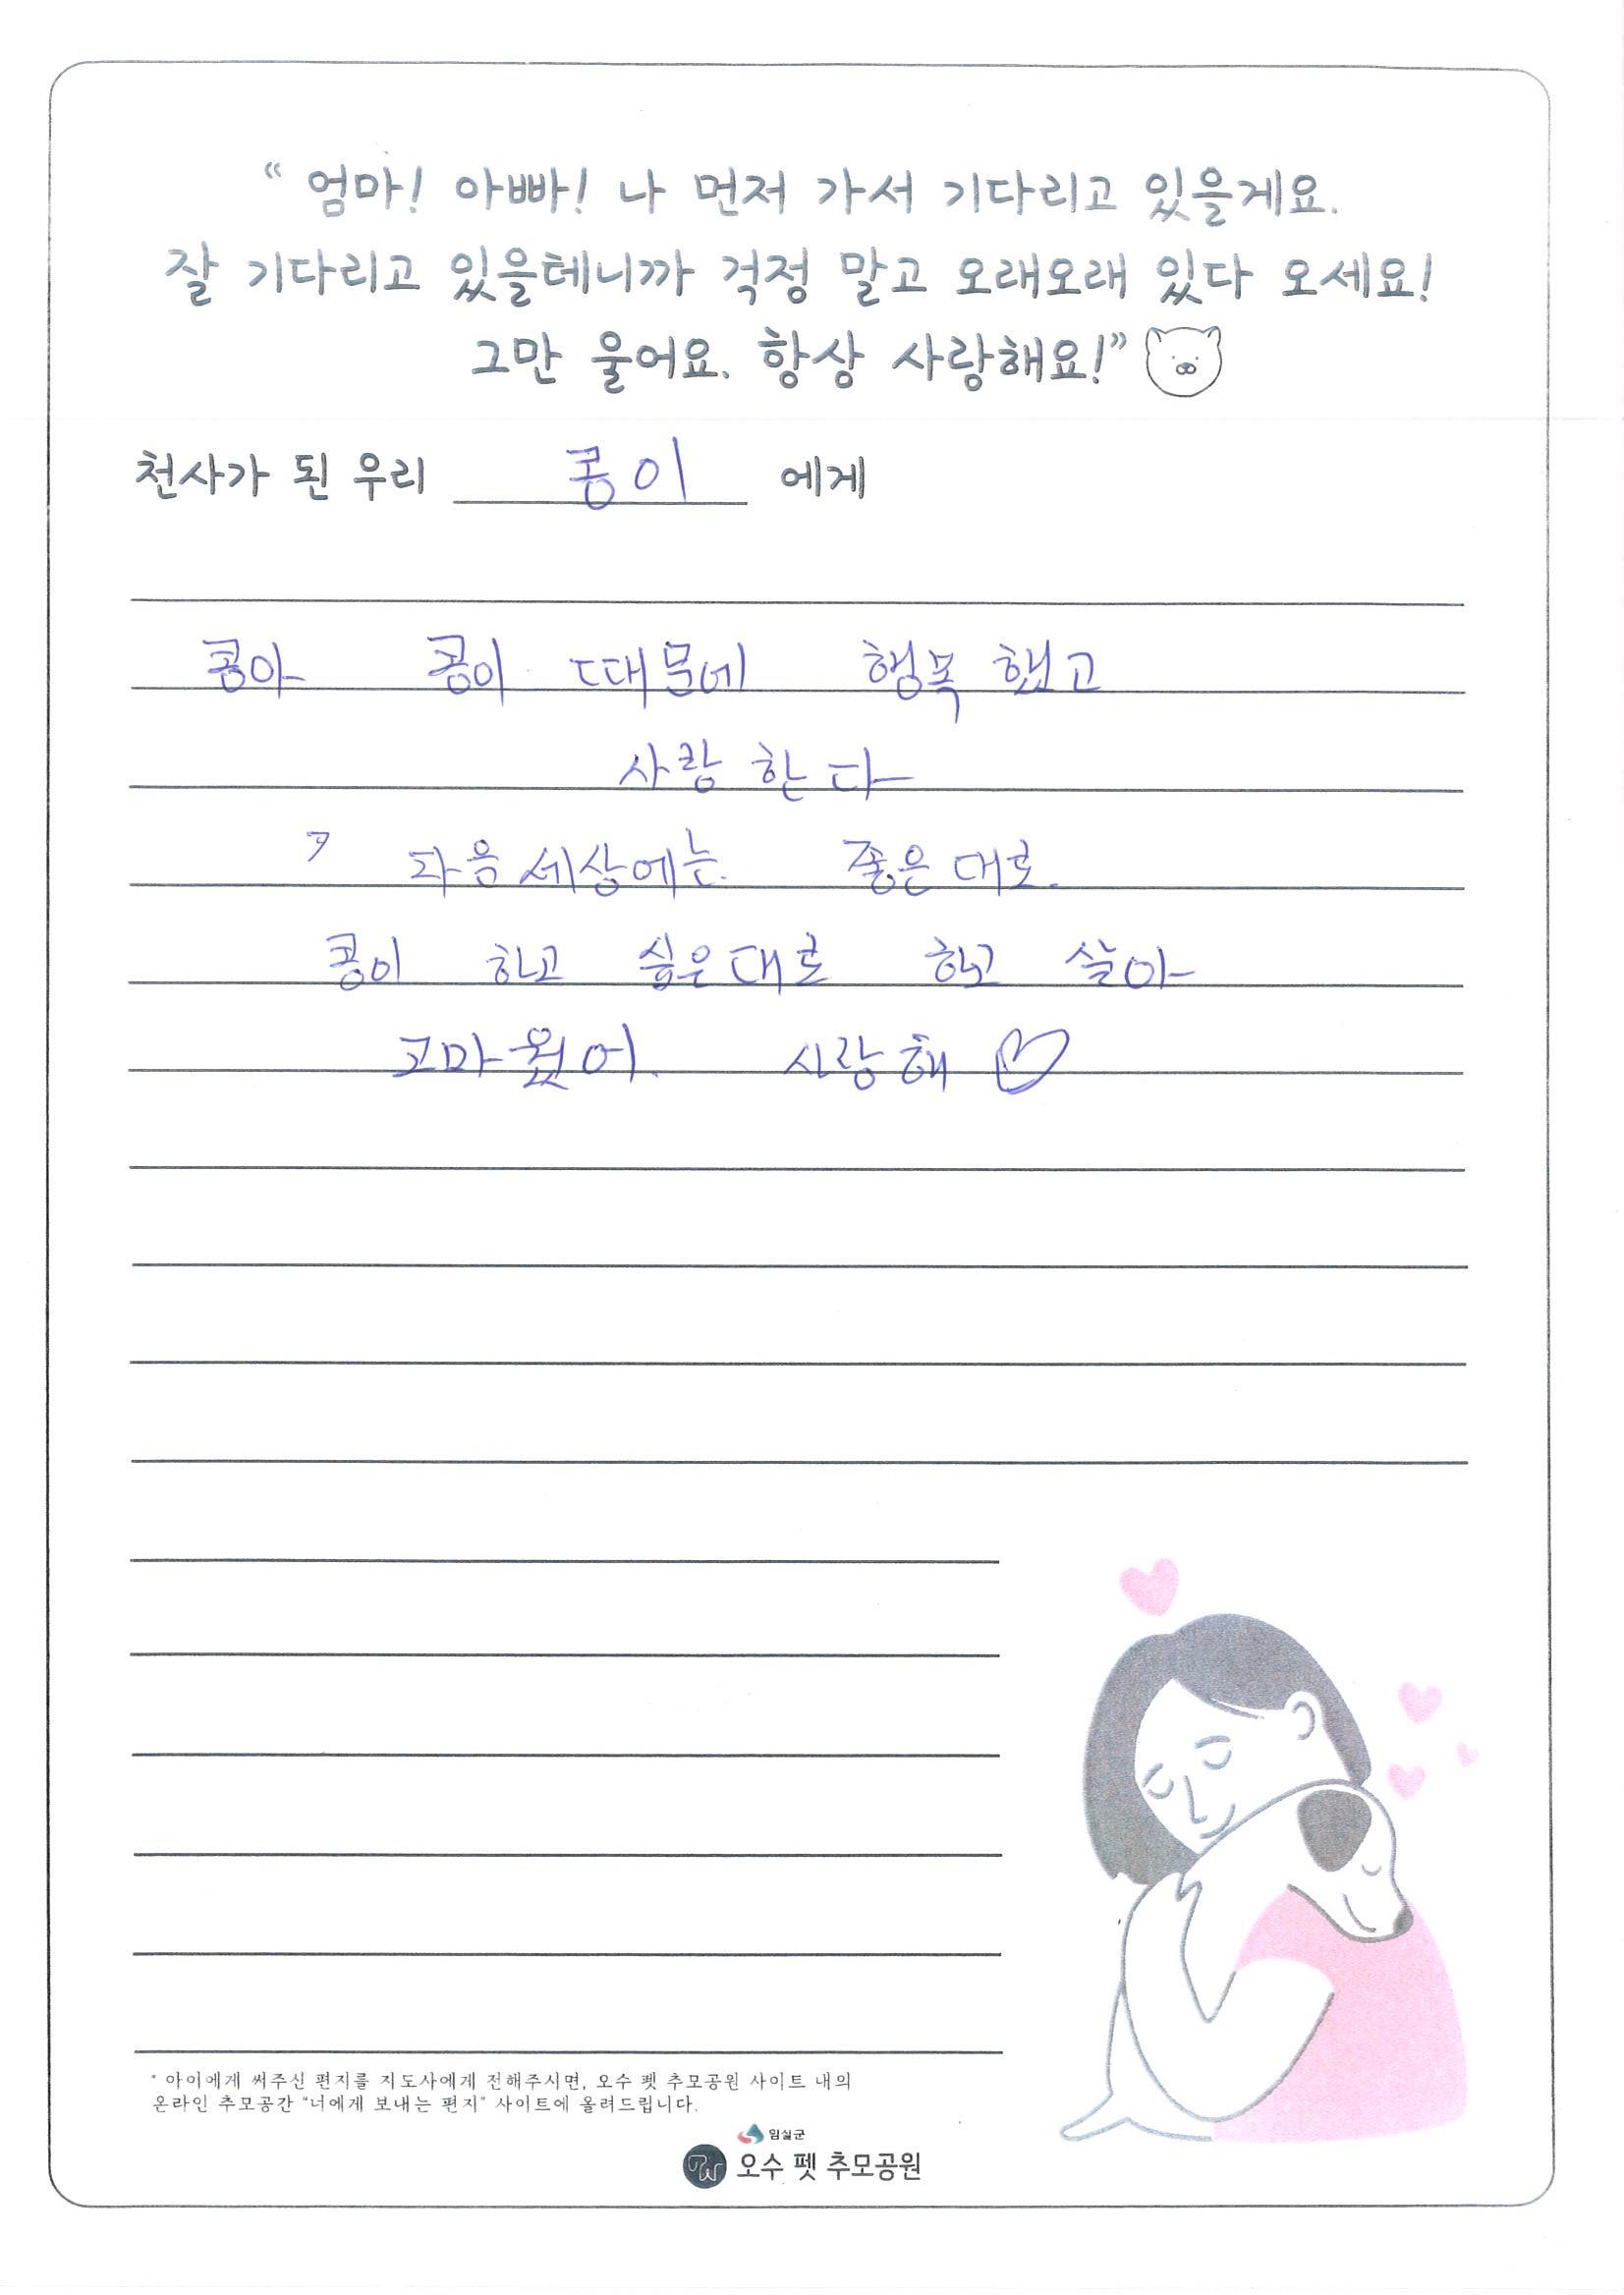 “ 엄마! 아빠! 나 먼저 가서 기다리고 있을게요.
잘 기다리고 있을테니까 걱정 말고 오래오래 있다 오세요!
그만 울어요. 항상 사랑해요!”
천사가 된 우리 콩이 에게
콩아 콩이 때문에 행복 했고
사랑 한다
다음 세상에는 좋은 대로.
콩이 하고 싶은대로 하고 살아
고마웠어. 사랑해 ♡
* 아이에게 써주신 편지를 지도사에게 전해주시면, 오수 펫 추모공원 사이트 내의
온라인 추모공간 “너에게 보내는 편지” 사이트에 올려드립니다.
임실군
오수 펫 추모공원